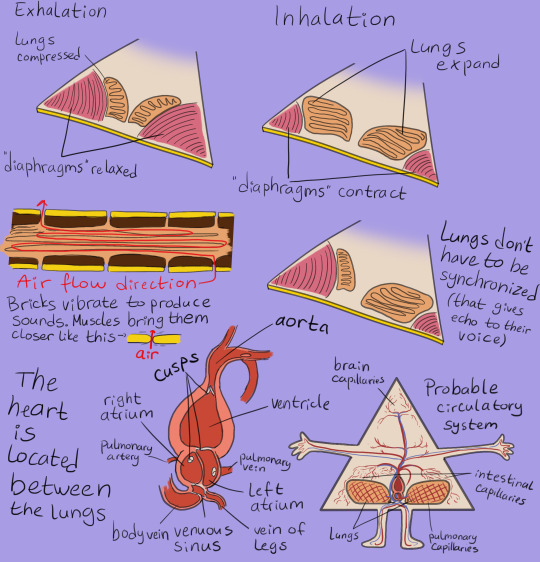 Exhalation
Lungs
compressed
"diaphragms" relaxed
Inhalation
Lungs
expand
"diaphragms" contract
Air flow direction
Bricks vibrate to produce
sounds. Muscles bring them
closer like this
air
Lungs don't
have to be
synchronized
(that gives
echo to their
voice)
The
heart
is
located
between
the lungs
aorta
cusps
right
atrium
ventricle
pulmonary
artery
pulmonary
vein
left
atrium
body vein
venuous
sinus
vein of
legs
brain
capillaries
Probable
circulatory
system
intestinal
capillaries
Lungs
pulmonary
capillaries